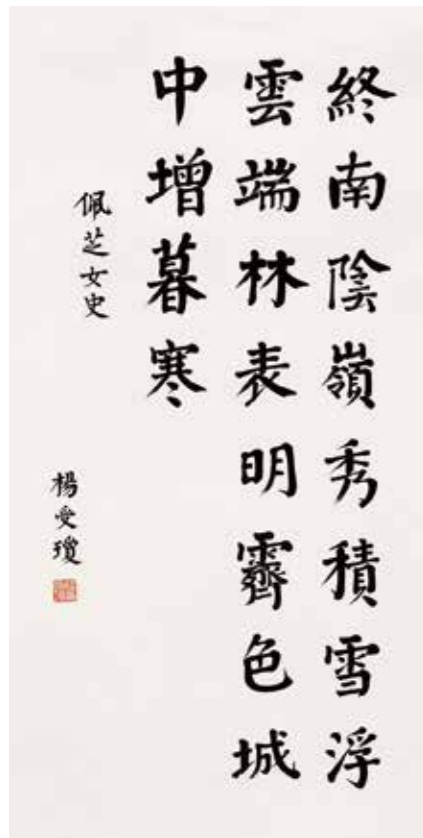 終南陰嶺秀積雪浮
雲端林表明霽色城
中增暮寒
佩芝女史
楊受瓊